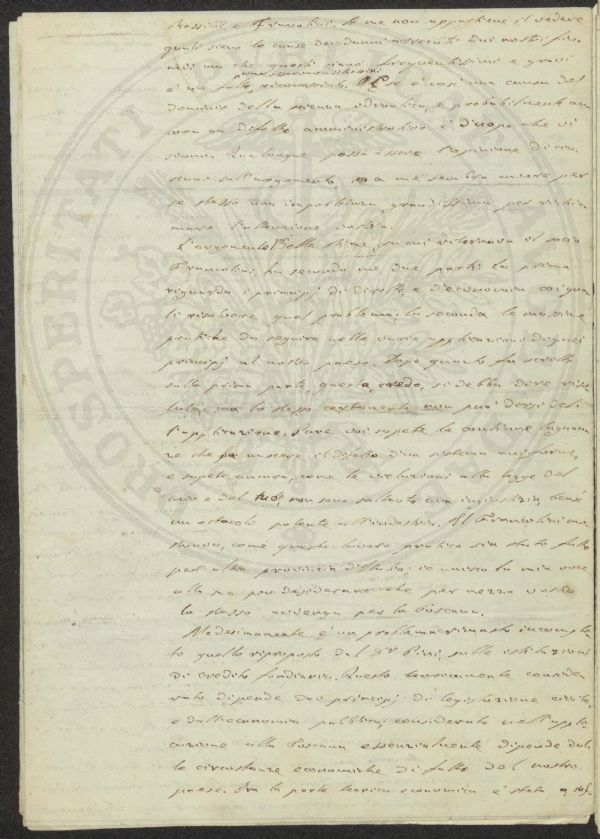 Rossini e Francolini. A me non appartiene il vedere
quali sieno le cause dei danni arrecati dai nostri fiu-
mi; ma che questi sieno frequentissimi e gravi
è un fatto riconosciuto. E se è così una causa del
dominio della scienza idraulica, e probabilmente an
cora un difetto amministrativo è d'uopo che vi
sieno. Qualunque possa essere l'opinione di cia-
scuno sull'argomento, a me sembra avere per
se stesso una importanza grandissima per richia
mare l'attenzione vostra.
L'argomento delle stime, su cui ritornava il socio
Francolini, ha secondo me due parti. La prima
riguarda i principj di diritto, e d'economia coi qua
li risolvere quel problema; la seconda le massime
pratiche da seguire nelle varie applicazioni di quei
principj al nostro paese. Dopo quanto fu scritto
sulla prima parte questa, credo, si debba dire riso
luta; ma lo stesso certamente non può dirsi del
l'applicazione. Pure voi sapete le continue lagnan
ze che fa nascere il difetto d'un sistema uniforme,
e sapete ancora, come le violazioni alla legge del
mio e del tuo, non sono soltanto una ingiustizia, bensì
un ostacolo potente all'industria. Il Francolini mo
strava, come questo lavoro pratico sia stato fatto
per altre provincie d'Italia; io unisco la mia voce
alla sua per desiderare che per mezzo vostro
lo stesso avvenga per la Toscana.
Medesimamente è un problema rimasto incomple
to quello riproposto dal D.r Pini, sulle istituzioni
di credito fondiario. Questo teoricamente conside
rato dipende dai principj di legislazione civile,
e dall'economia pubblica; considerato nell'appli
cazione alla Toscana essenzialmente dipende dal
le circostanze economiche di fatto del nostro
paese. Ora la parte teorica economica è stata